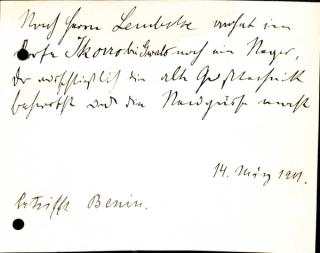 Nach Herrn Lembcke wohnt im
Dorfe Ikorrobi Gwato noch ein Neger,
der vorzüglich die alte Gußtechnik
beherrscht und die Neugüsse macht
14. März 1911.
betrifft Benin.